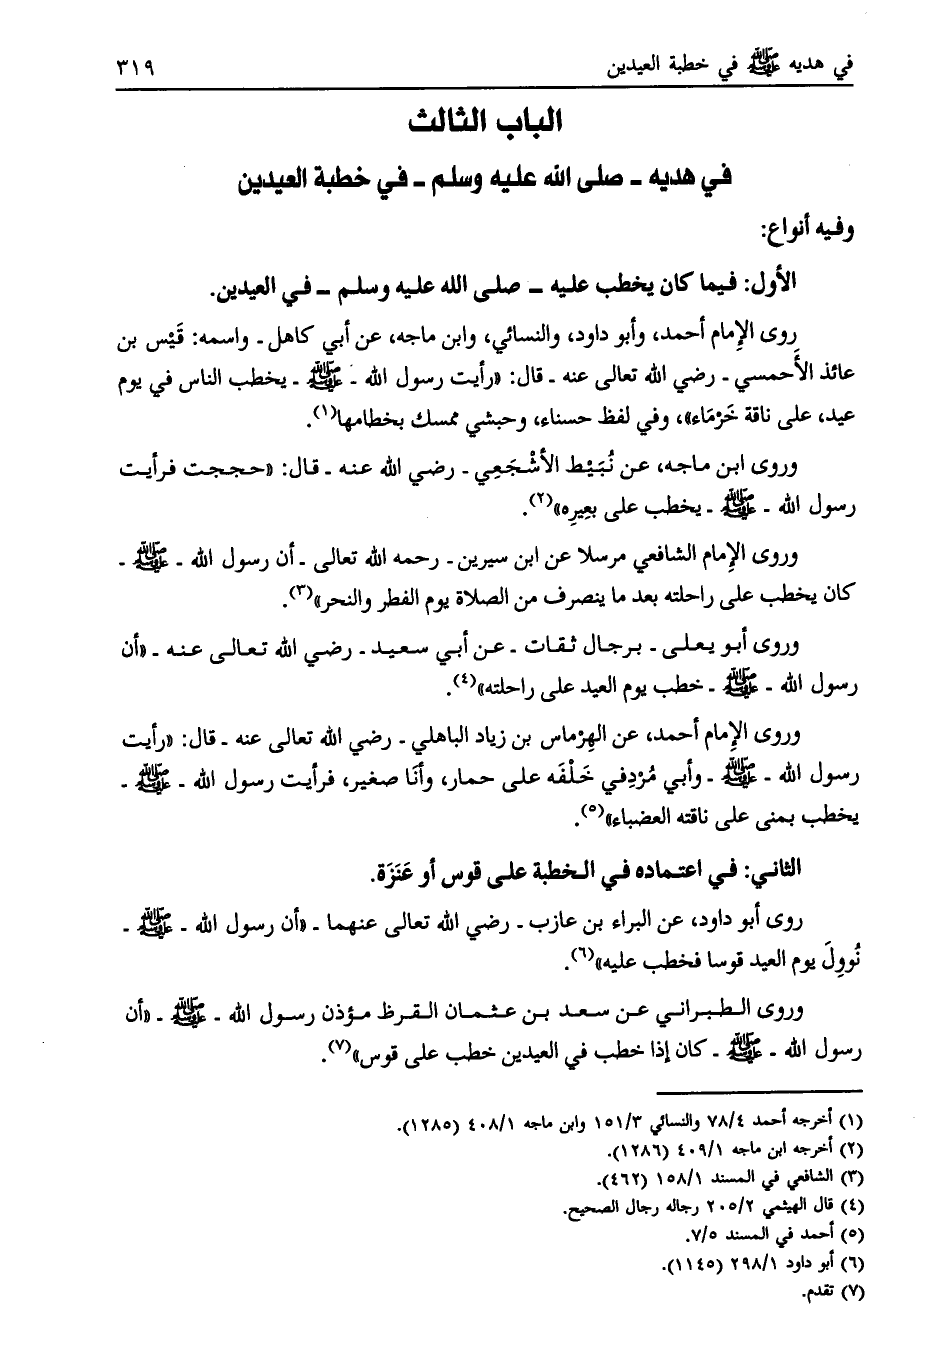 في هديه ﷺ في خطبة العيدين ٣١٩
الباب الثالث
في هديه ـ صلى الله عليه وسلم ـ في خطبة العيدين
وفيه أنواع:
الأول: فيما كان يخطب عليه ـ صلى الله عليه وسلم ـ في العيدين.
روى الإِمام أحمد، وأبو داود، والنسائي، وابن ماجه، عن أبي كاهل ـ واسمه: قَيْس بن
عائذ الأَحمسي ـ رضي الله تعالى عنه ـ قال: «رأيت رسول الله ـ ﷺ ـ يخطب الناس في يوم
عيد، على ناقة خَرْمَاء»، وفي لفظ حسناء، وحبشي ممسك بخطامها(١).
وروى ابن ماجه، عن نُبَيْط الأشْجَعِي ـ رضي الله عنه ـ قال: «حججت فرأيت
رسول الله ـ ﷺ ـ يخطب على بعِيرِه»(٢).
وروى الإِمام الشافعي مرسلا عن ابن سيرين ـ رحمه الله تعالى ـ أن رسول الله ـ ﷺ ـ
كان يخطب على راحلته بعد ما ينصرف من الصلاة يوم الفطر والنحر»(٣).
وروى أبو يعلى ـ برجال ثقات ـ عن أبي سعيد ـ رضي الله تعالى عنه ـ «أن
رسول الله ـ ﷺ ـ خطب يوم العيد على راحلته»(٤).
وروى الإِمام أحمد، عن الهِرْماس بن زياد الباهلي ـ رضي الله تعالى عنه ـ قال: «رأيت
رسول الله ـ ﷺ ـ وأبي مُرْدِفي خَلْفَه على حمار، وأنَا صغير، فرأيت رسول الله ـ ﷺ ـ
يخطب بمنى على ناقته العضباء»(٥).
الثاني: في اعتماده في الخطبة على قوس أو عَنَزَة.
روى أبو داود، عن البراء بن عازب ـ رضي الله تعالى عنهما ـ «أن رسول الله ـ ﷺ ـ
نُووِلَ يوم العيد قوسا فخطب عليه»(٦).
وروى الطبراني عن سعد بن عثمان القرظ مؤذن رسول الله ـ ﷺ ـ «أن
رسول الله ـ ﷺ ـ كان إذا خطب في العيدين خطب على قوس»(٧).
(١) أخرجه أحمد ٧٨/٤ والنسائي ١٥١/٣ وابن ماجه ٤٠٨/١ (١٢٨٥).
(٢) أخرجه ابن ماجه ٤٠٩/١ (١٢٨٦).
(٣) الشافعي في المسند ١٥٨/١ (٤٦٢).
(٤) قال الهيثمي ٢٠٥/٢ رجاله رجال الصحيح.
(٥) أحمد في المسند ٧/٥.
(٦) أبو داود ٢٩٨/١ (١١٤٥).
(٧) تقدم.